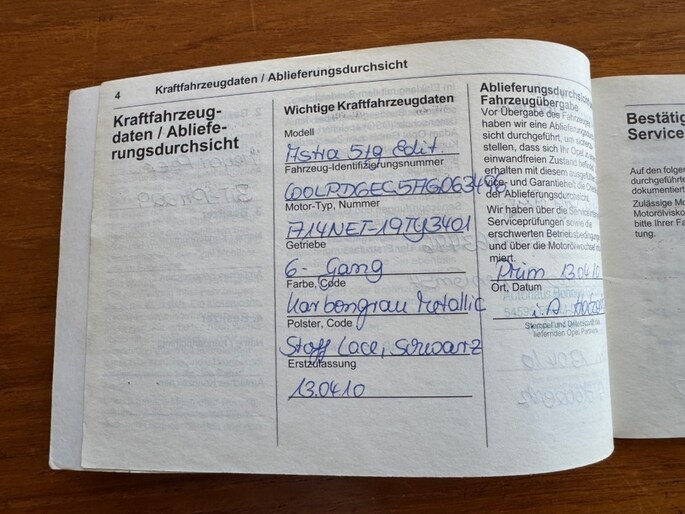 4 Kraftfahrzeugdaten / Ablieferungsdurchsicht
Kraftfahrzeug-
daten / Abliefe-
rungsdurchsicht
Wichtige Kraftfahrzeugdaten
Modell
Astra 5tg Edit.
Fahrzeug-Identifizierungsnummer
Motor-Typ, Nummer
Getriebe
6- Gang
Farbe, Code
Karbongrau Metallic
Polster, Code
Stoff Lace, Schwarz
Erstzulassung
13.04.10
Ablieferungsdurchsicht
Fahrzeugübergabe
Vor Übergabe des Fahrzeuges
haben wir eine Ablieferungs
sicht durchgeführt, um sicherzu
stellen, dass sich Ihr Opel in
einwandfreien Zustand befindet.
erhalten mit diesem ausgefüllten
und Garantieheft die
der Ablieferungsdurchsicht.
Wir haben über die
Serviceprüfungen sowie die
erschwerten Betriebsbedingun
und über die Motorölwechsel
miert.
Prüm 13.04.10
Ort, Datum
i.A
Stempel und Unterschrift des
liefernden Opel Partners
Bestätig
Service
Auf den folgen
durchgeführte
dokumentiert
Zulässige Mo
Motorölvisko
bitte Ihrer Fa
tung.